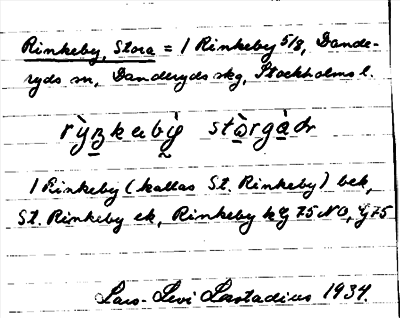 Rinkeby, Stora = 1 Rinkeby 5/8, Dande-
ryds sn, Danderyds skg, Stockholms l.
stòrgàdr
1 Rinkeby (kallas St. Rinkeby) bek,
St. Rinkeby ek, Rinkeby kg 75 NO, G 75
Lars-Levi Læstadius 1934.